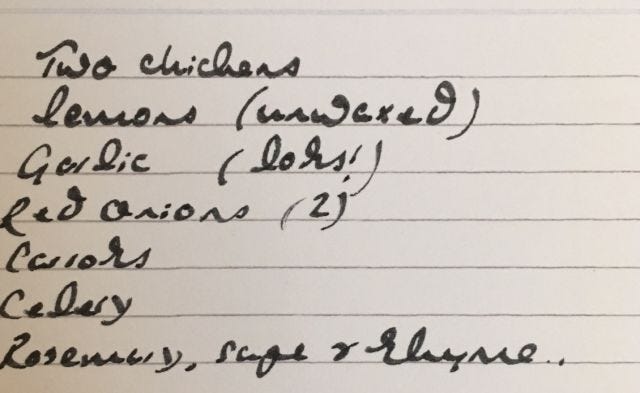 Two chickens
lemons (unwaxed)
Garlic (lots!)
Red onions (2)
Carrots
Celery
Rosemary, sage & thyme.